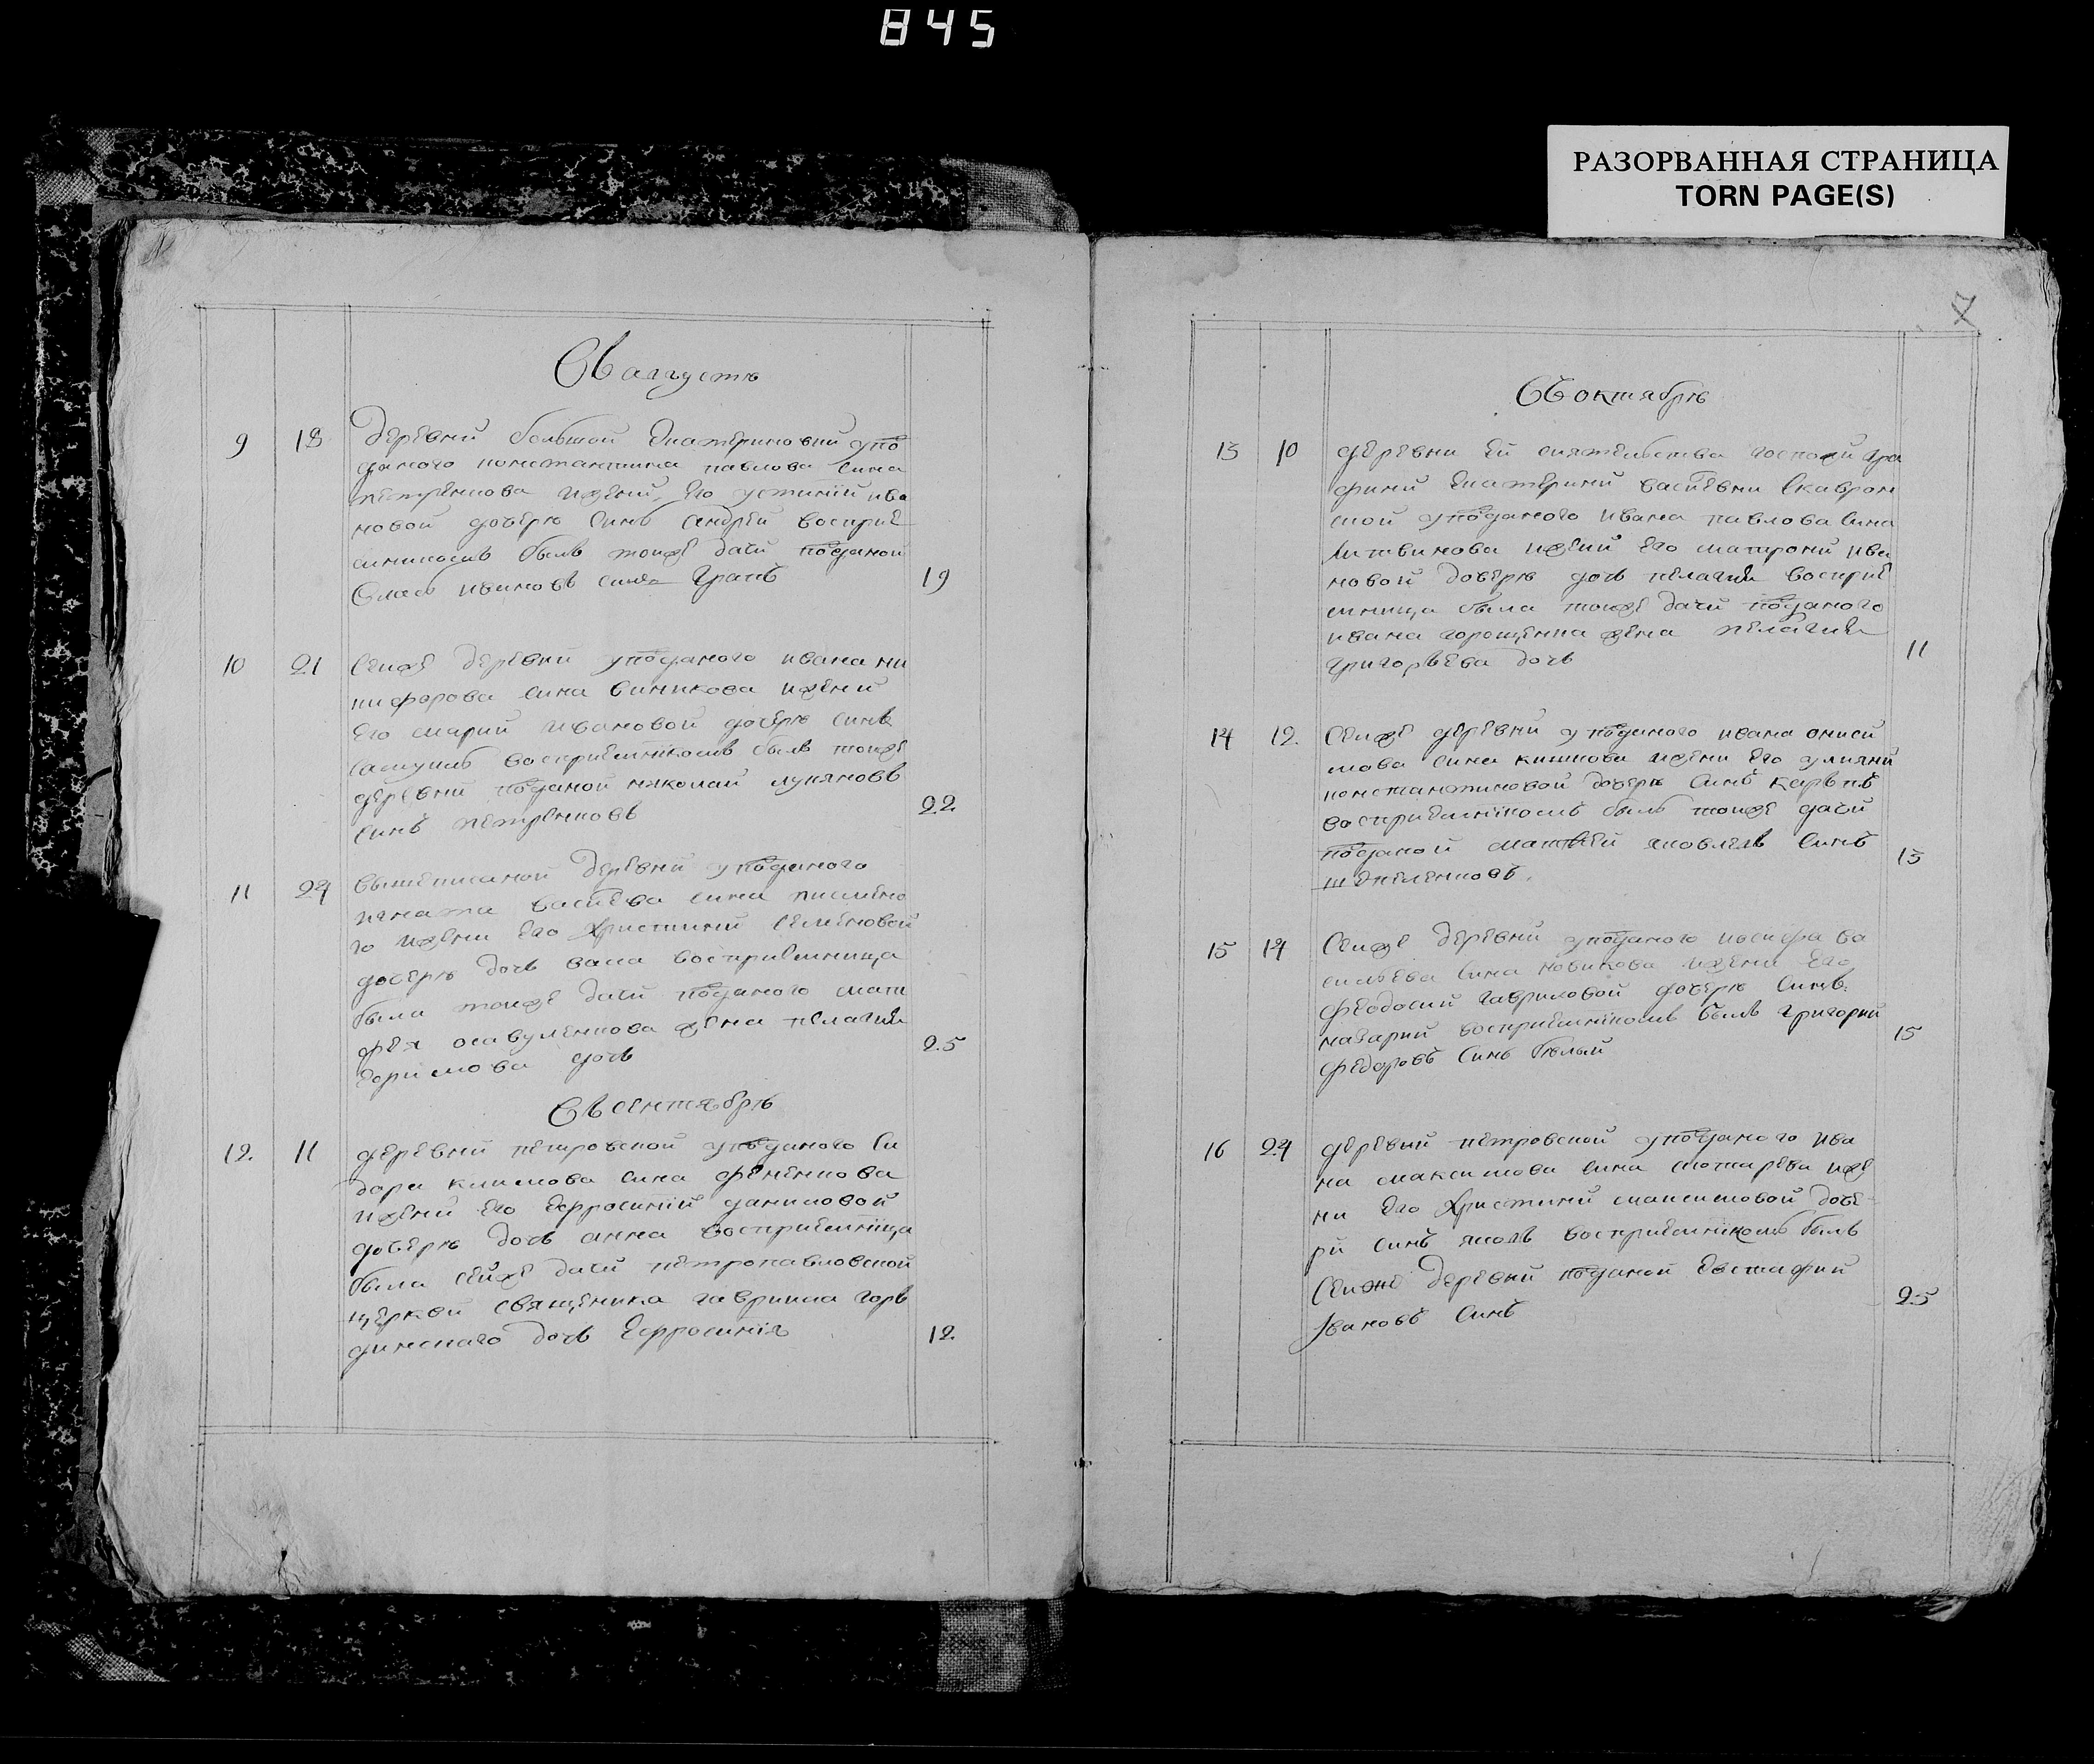 845
РАЗОРВАННАЯ СТРАНИЦА
TORN PAGE(S)
Въ августѣ
9 18 деревни большой Екатериновки у подъ
даного константина павлова сина
петренкова и жени его устинiи ива
новой дочерѣ синъ андрей воспрiе
мникомъ былъ тоиже дачи поданой
Власъ ивановъ синъ 19
10 21 Сеиже деревни у поданого ивана ни
кифорова сина и жени
его марiи ивановой дочерѣ синъ
самуилъ воспрiемнiкомъ былъ тоиже
деревни поданой николай лукяновъ
синъ петренковъ 22
11 24 вишеписаной деревни у поданого
игната васиева сина писмено
го и жени его христини семеновой
дочерѣ дочь васа воспрiемница
была тоиже дачи поданого мат
фея осавуленкова жена пелагия
дочь 25
Въ сентябрѣ
12 11 деревни петровской у поданого си
дора климова сина фененкова
и жени его Ефросинiи даниловой
дочерѣ дочь анна воспрiемнiца
была сейже дачи петропавловской
церкви священика гаврiила горъ
динскаго дочь Ефросинiя 12
7
Въ октябрѣ
13 10 деревни ей сиятельства госпожи гра
фини Екатерини васиевни Скаврон
ской у поданого ивана павлова сина
литвинова и жени его матрони ива
новой дочерѣ дочь пелагия воспрiе
мница была тоиже дачи поданого
ивана горощенка жена пелагия
григорьева дочь 11
14 12 Сеиже деревни у поданого ивана ониси
мова сина кишкова и жени его улияни
константиновой дочерѣ синъ карьпъ
воспрiемнiкомъ былъ тоиже дачи
поданой матвей яковлевъ синъ
шепеленковъ 13
15 14 Сеиже деревни у поданого иосифа ва
сильева сина новикова и жени его
феодосии гавриловой дочерѣ синъ
назарий воспрiемнiкомъ былъ григорий
федоровъ синъ бѣлый 15
16 24 деревни петровской у поданого ива
на максимова сина слюсарева и же
ни его христини максимовой доче
ри синъ яковъ воспрiемнiкомъ былъ
Сеиже деревни поданой Евстафий
Iвановъ синъ 25